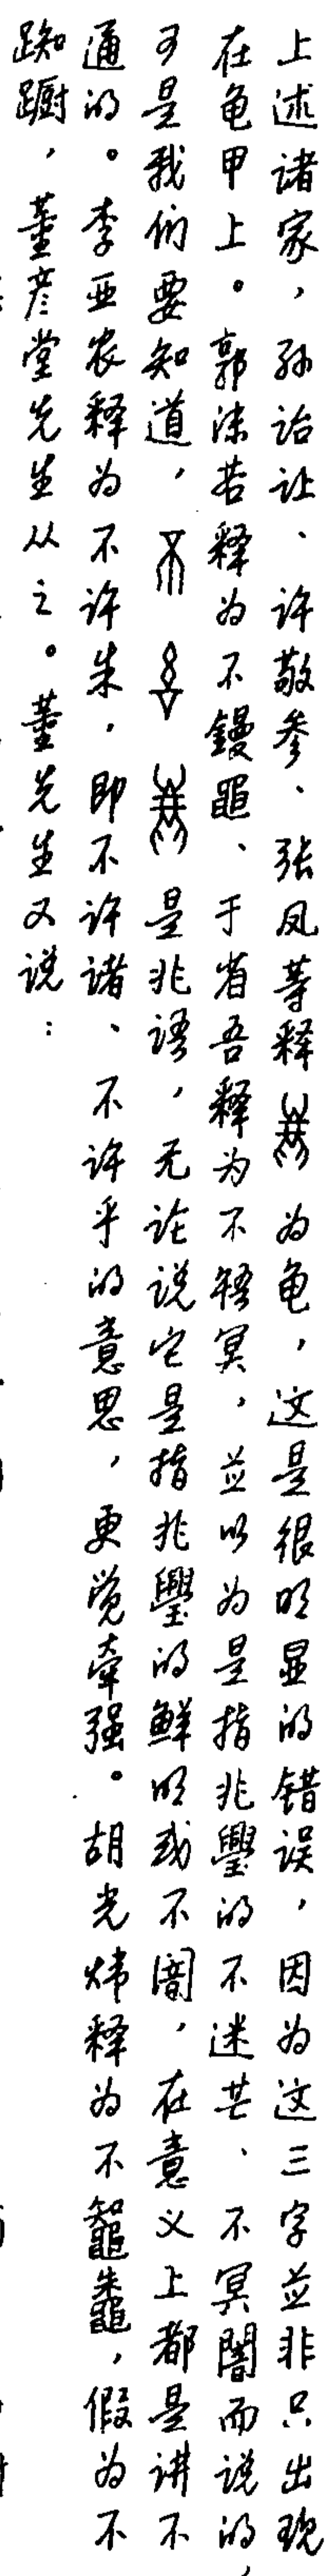 上述诸家，孙诒让、许敬参、张凤等释为龟，这是很明显的错误，因为这三字並非只出现
在龟甲上。郭沫若释为不镘黽、于省吾释为不𤕌冥，並以为是指兆璺的不迷芒、不冥闇而说的，
可是我们要知道，是兆语，无论说它是指兆璺的鲜明或不闇，在意义上都是讲不
通的。李亚农释为不许朱，即不许诸、不许乎的意思，更觉牵强。胡光炜释为不鼅鼄，假为不
踟蹰，董彦堂先生从之。董先生又说：